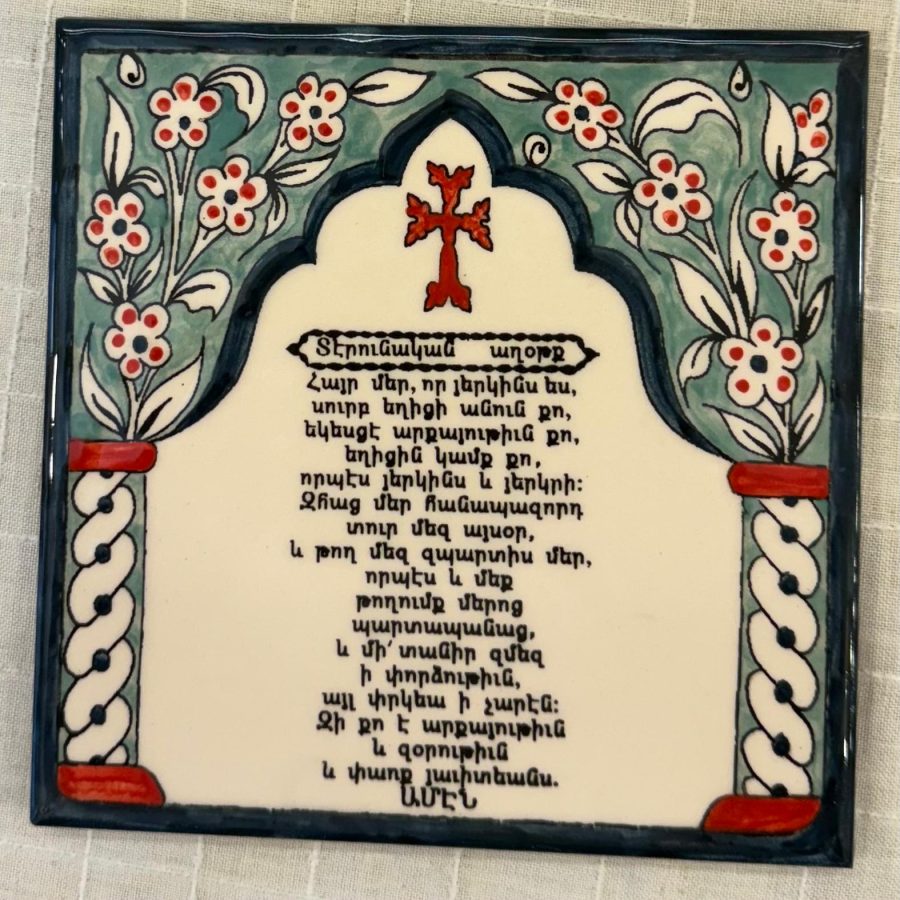 Տէրունական աղօթք
Հայր մեր, որ յերկինս ես,
սուրբ եղիցի անուն քո,
եկեսցէ արքայութիւն քո,
եղիցին կամք քո,
որպէս յերկինս և յերկրի:
Զհաց մեր հանապազորդ
տուր մեզ այսօր,
և թող մեզ զպարտիս մեր,
որպէս և մեք
թողումք մերոց
պարտապանաց,
և մի՛ տանիր զմեզ
ի փորձութիւն,
այլ փրկեա ի չարէն:
Զի քո է արքայութիւն
և զօրութիւն
և փառք յաւիտեանս.
ԱՄԷՆ